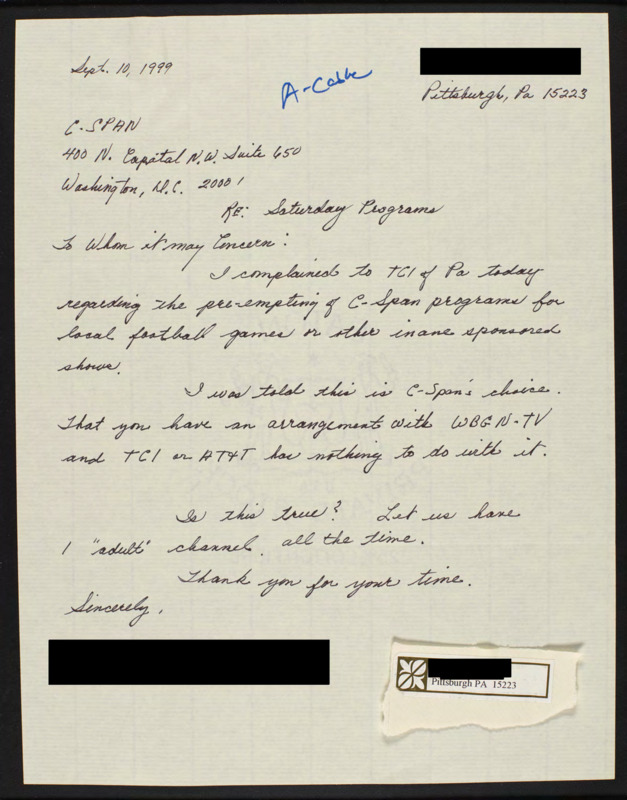 Sept. 10, 1999
A-Cable
Pittsburgh, Pa 15223
C-SPAN
400 N. Capital N.W. Suite 650
Washington, D.C. 20001
RE: Saturday Programs
To Whom it may Concern:
I complained to TCI of Pa today
regarding the pre-empting of C-Span programs for
local football games or other inane sponsored
shows.
I was told this is C-Span's choice.
That you have an arrangement with WBGN-TV
and TCI or AT&T has nothing to do with it.
Is this true? Let us have
1 "adult" channel, all the time.
Thank you for your time.
Sincerely,
Pittsburgh PA 15223